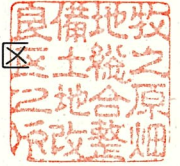 牧之原畑
地総合整
備土地改
良区之印